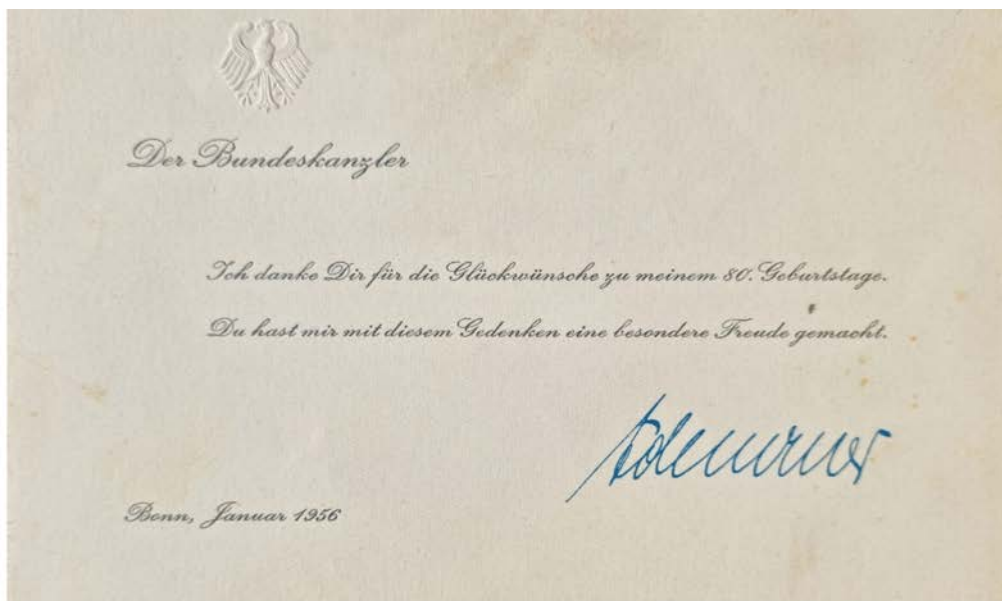 Der Bundeskanzler
Ich danke Dir für die Glückwünsche zu meinem 80. Geburtstage.
Du hast mir mit diesem Gedenken eine besondere Freude gemacht.
Adenauer
Bonn, Januar 1956